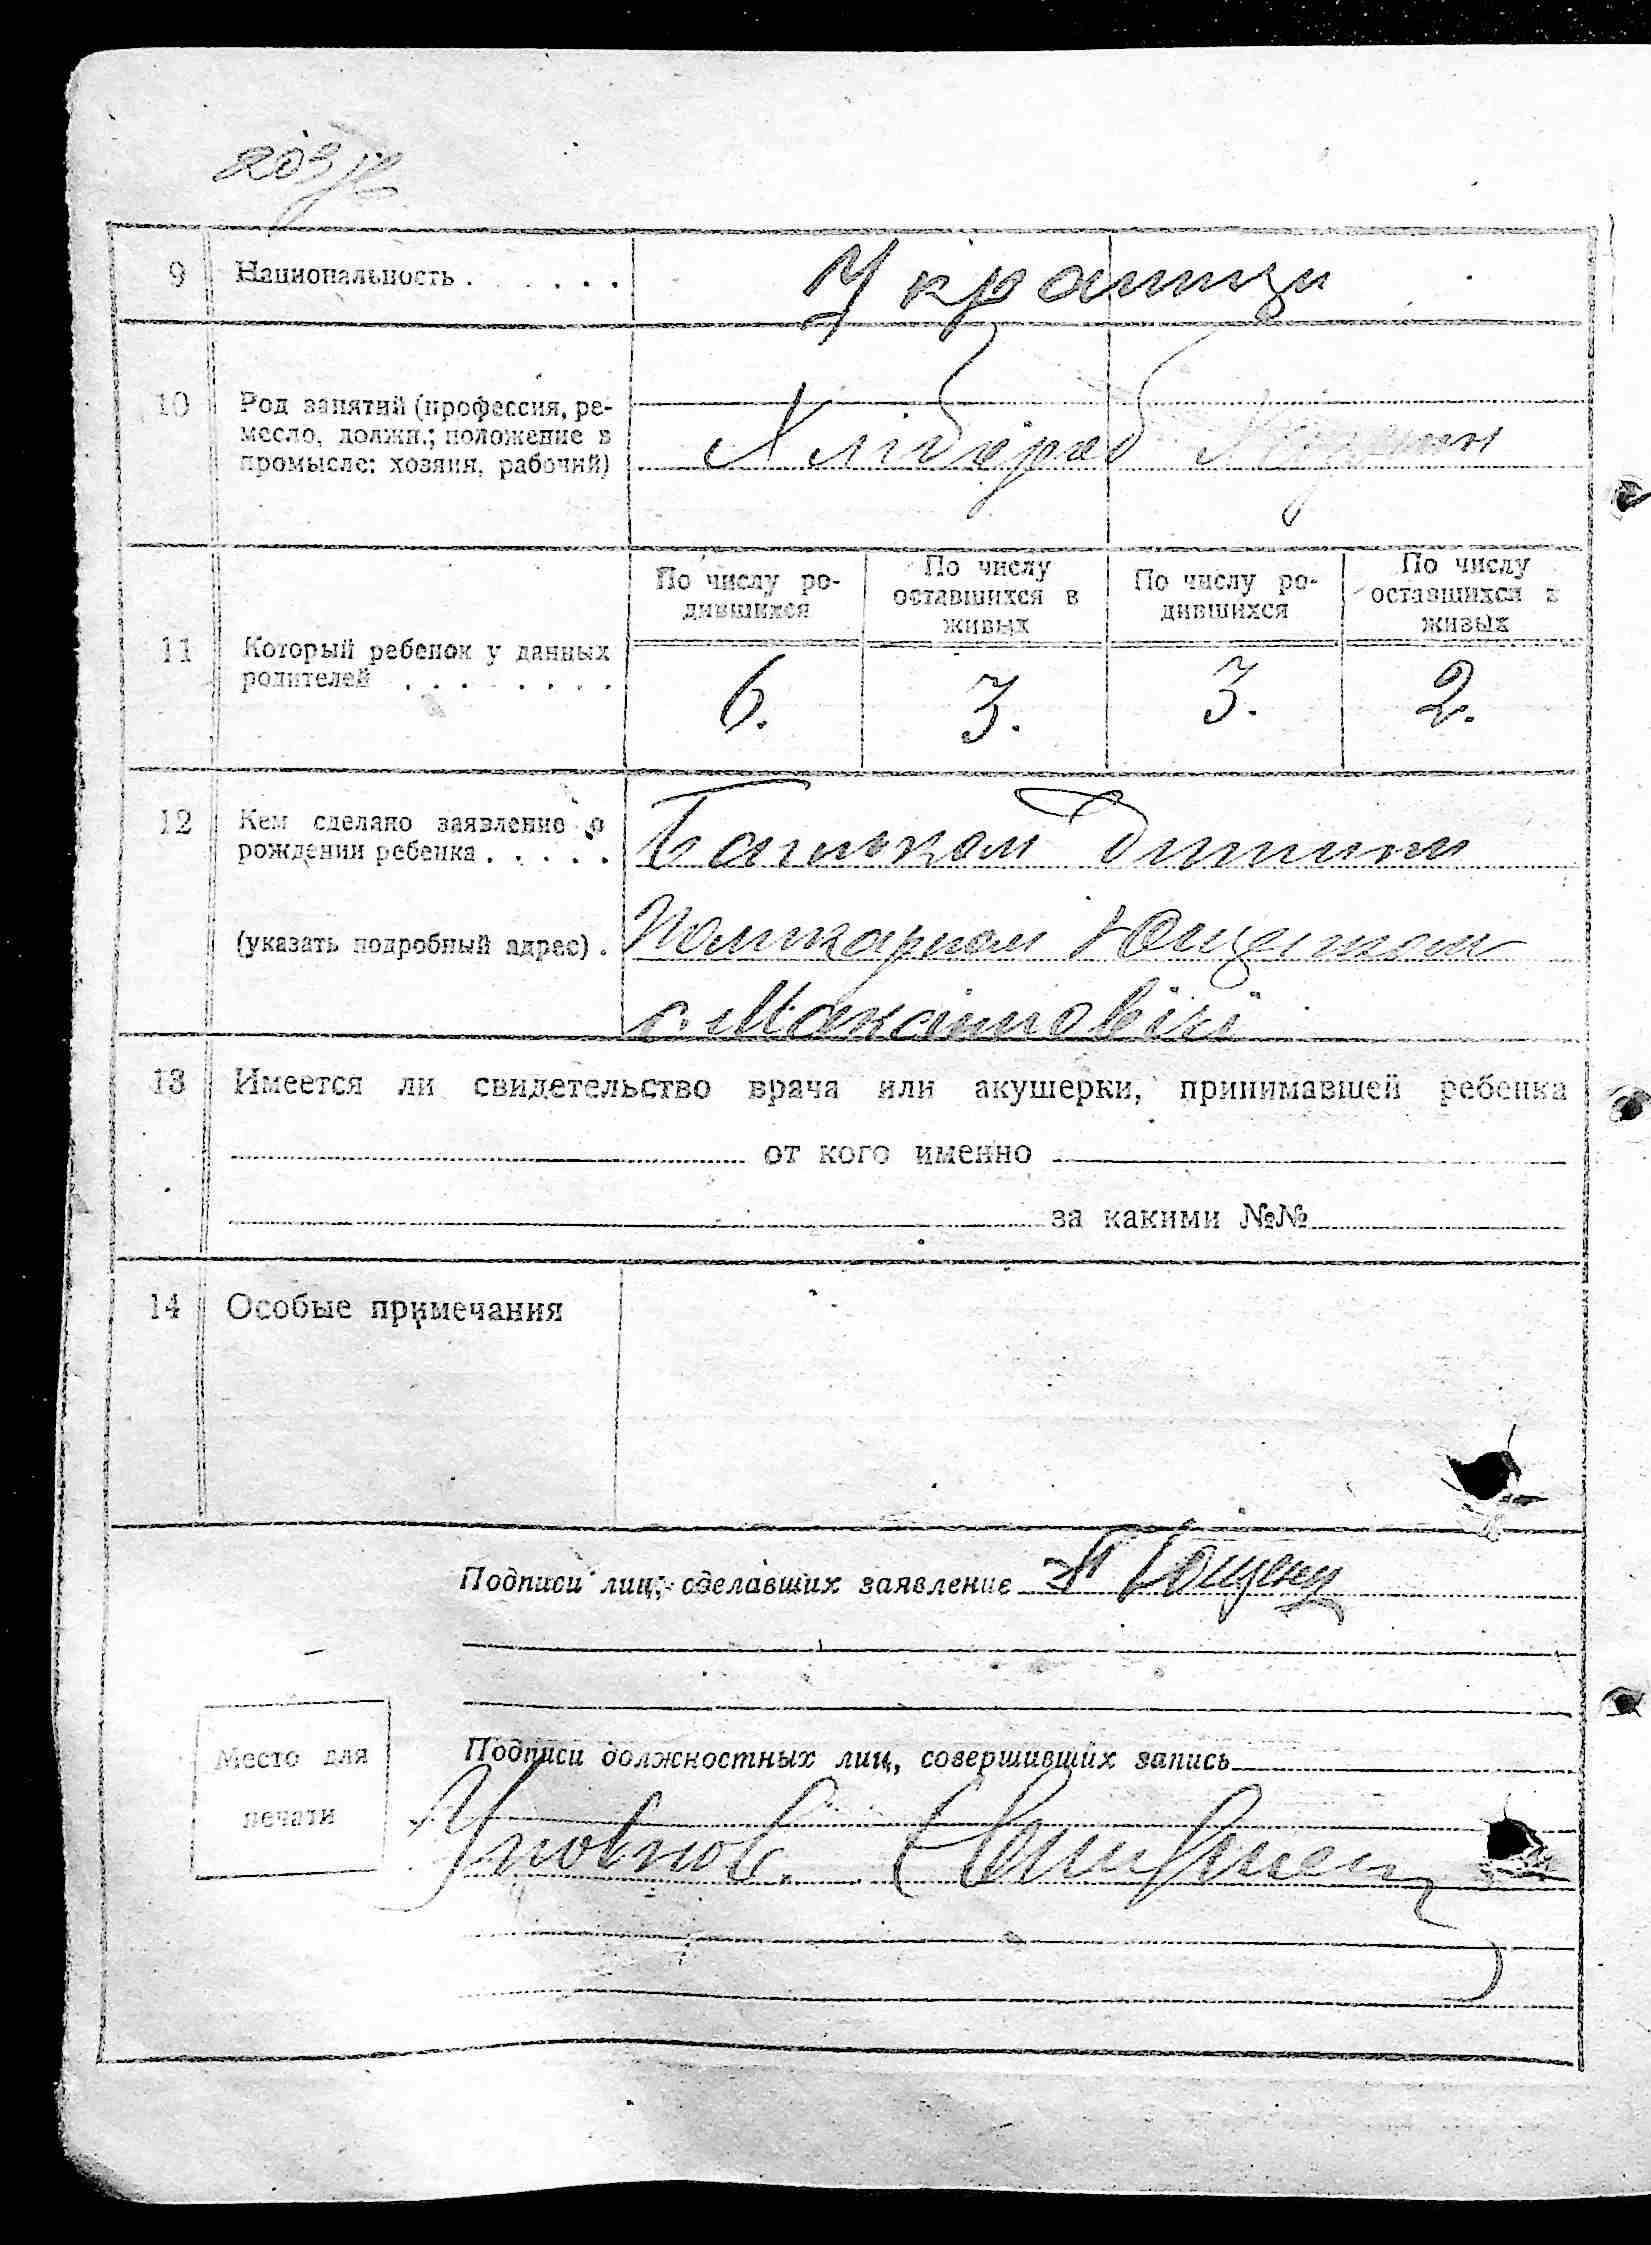 9 Национальность . . . . . . Українци
10 Род занятий (профессия, ре-
месло, должн.; положение в
промысле: хозяин, рабочий)
Хлібороб
По числу ро-
дившихся
По числу
оставшихся в
живых
По числу ро-
дившихся
По числу
оставшихся в
живых
11 Который ребенок у данных
родителей . . . . . . . .
6. 3. 3. 2.
12 Кем сделано заявление о
рождении ребенка . . . . .
Батьком дитини
(указать подробный адрес) .
с. Максимовкі
13 Имеется ли свидетельство врача или акушерки, принимавшей ребенка
от кого именно
за какими №№
14 Особые примечания
Подписи лиц, сделавших заявление
Место для
печати
Подписи должностных лиц, совершивших запись
Уповнов.